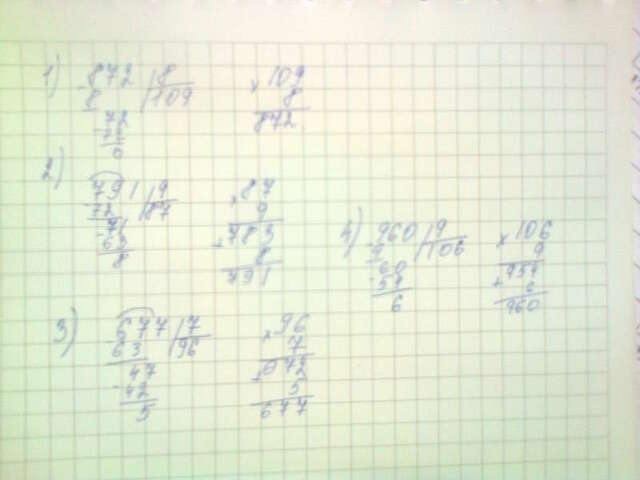 1) 872 | 8
8 | 109
72
72
0
× 109
8
872
2) 791 | 9
72 | 87
71
63
8
× 87
9
+ 783
8
791
3) 677 | 7
63 | 96
47
- 42
5
× 96
7
+ 672
5
677
4) 960 | 9
9 | 106
60
- 54
6
× 106
9
+ 954
6
960